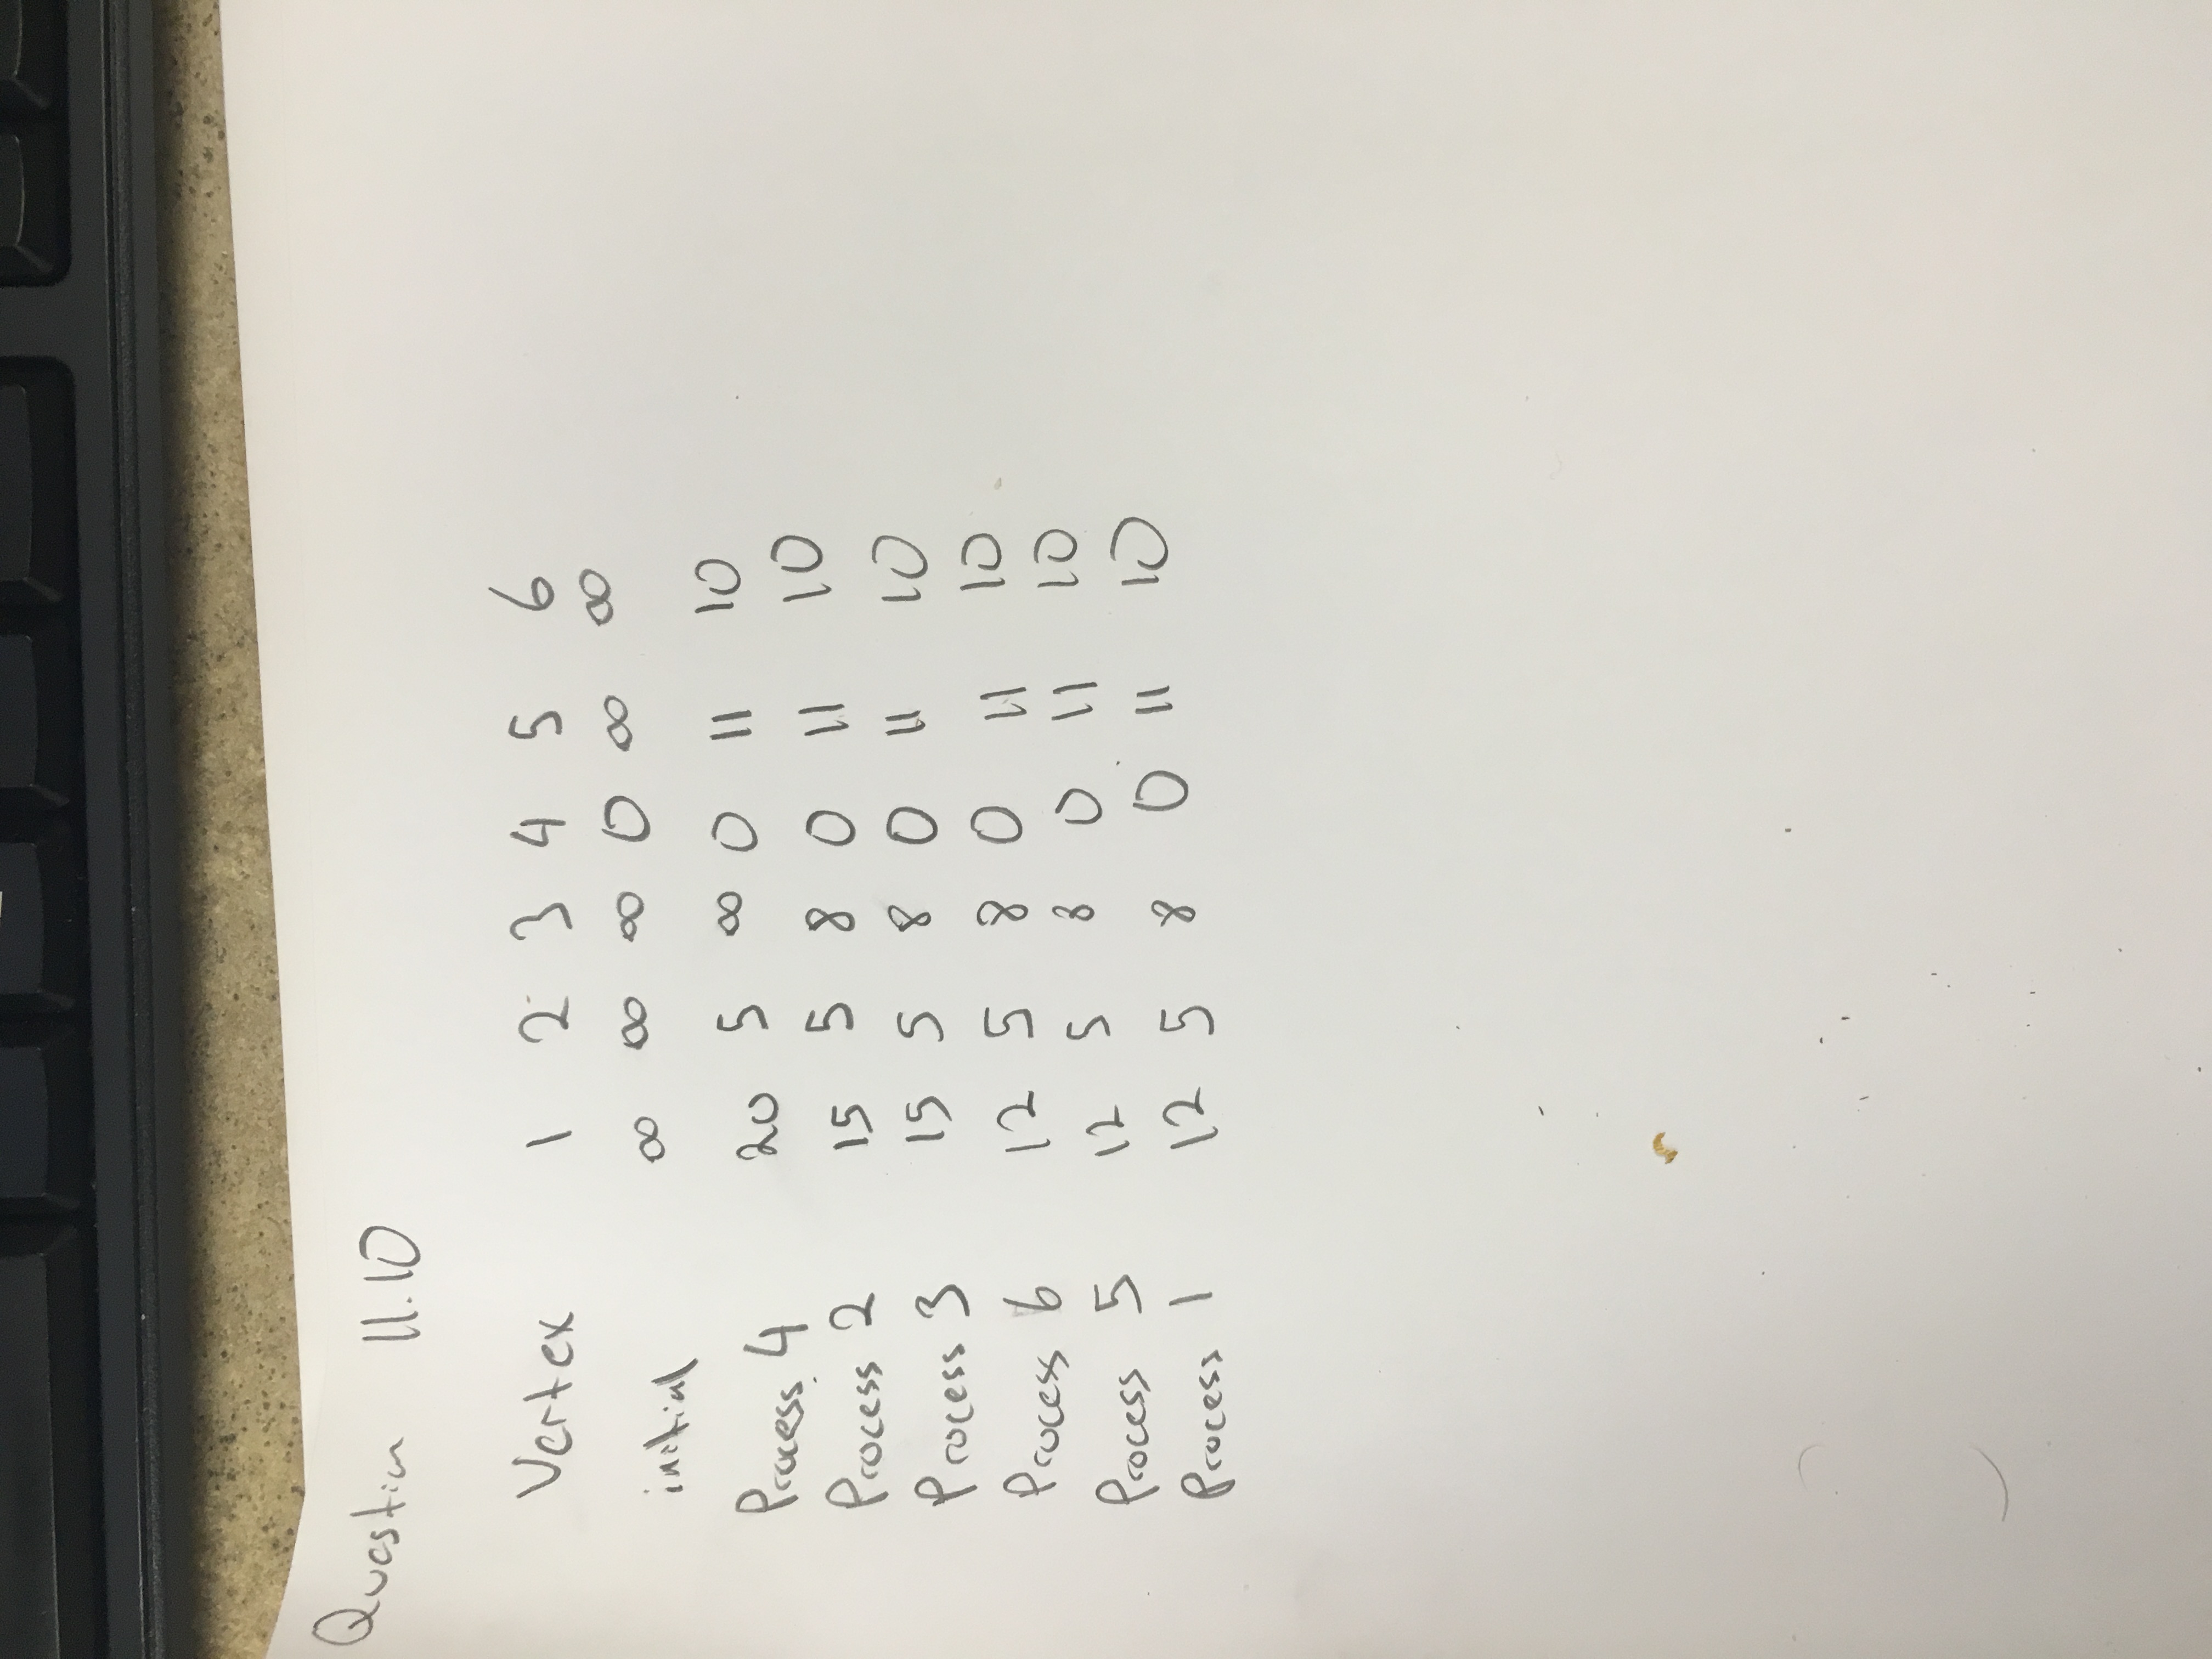 Question 11.10
Vertex 1 2 3 4 5 6
initial ∞ ∞ ∞ 0 ∞ ∞
Process 4 20 5 ∞ 0 11 10
Process 2 15 5 8 0 11 10
Process 3 15 5 8 0 11 10
Process 6 12 5 8 0 11 10
Process 5 12 5 8 0 11 10
Process 1 12 5 8 0 11 10